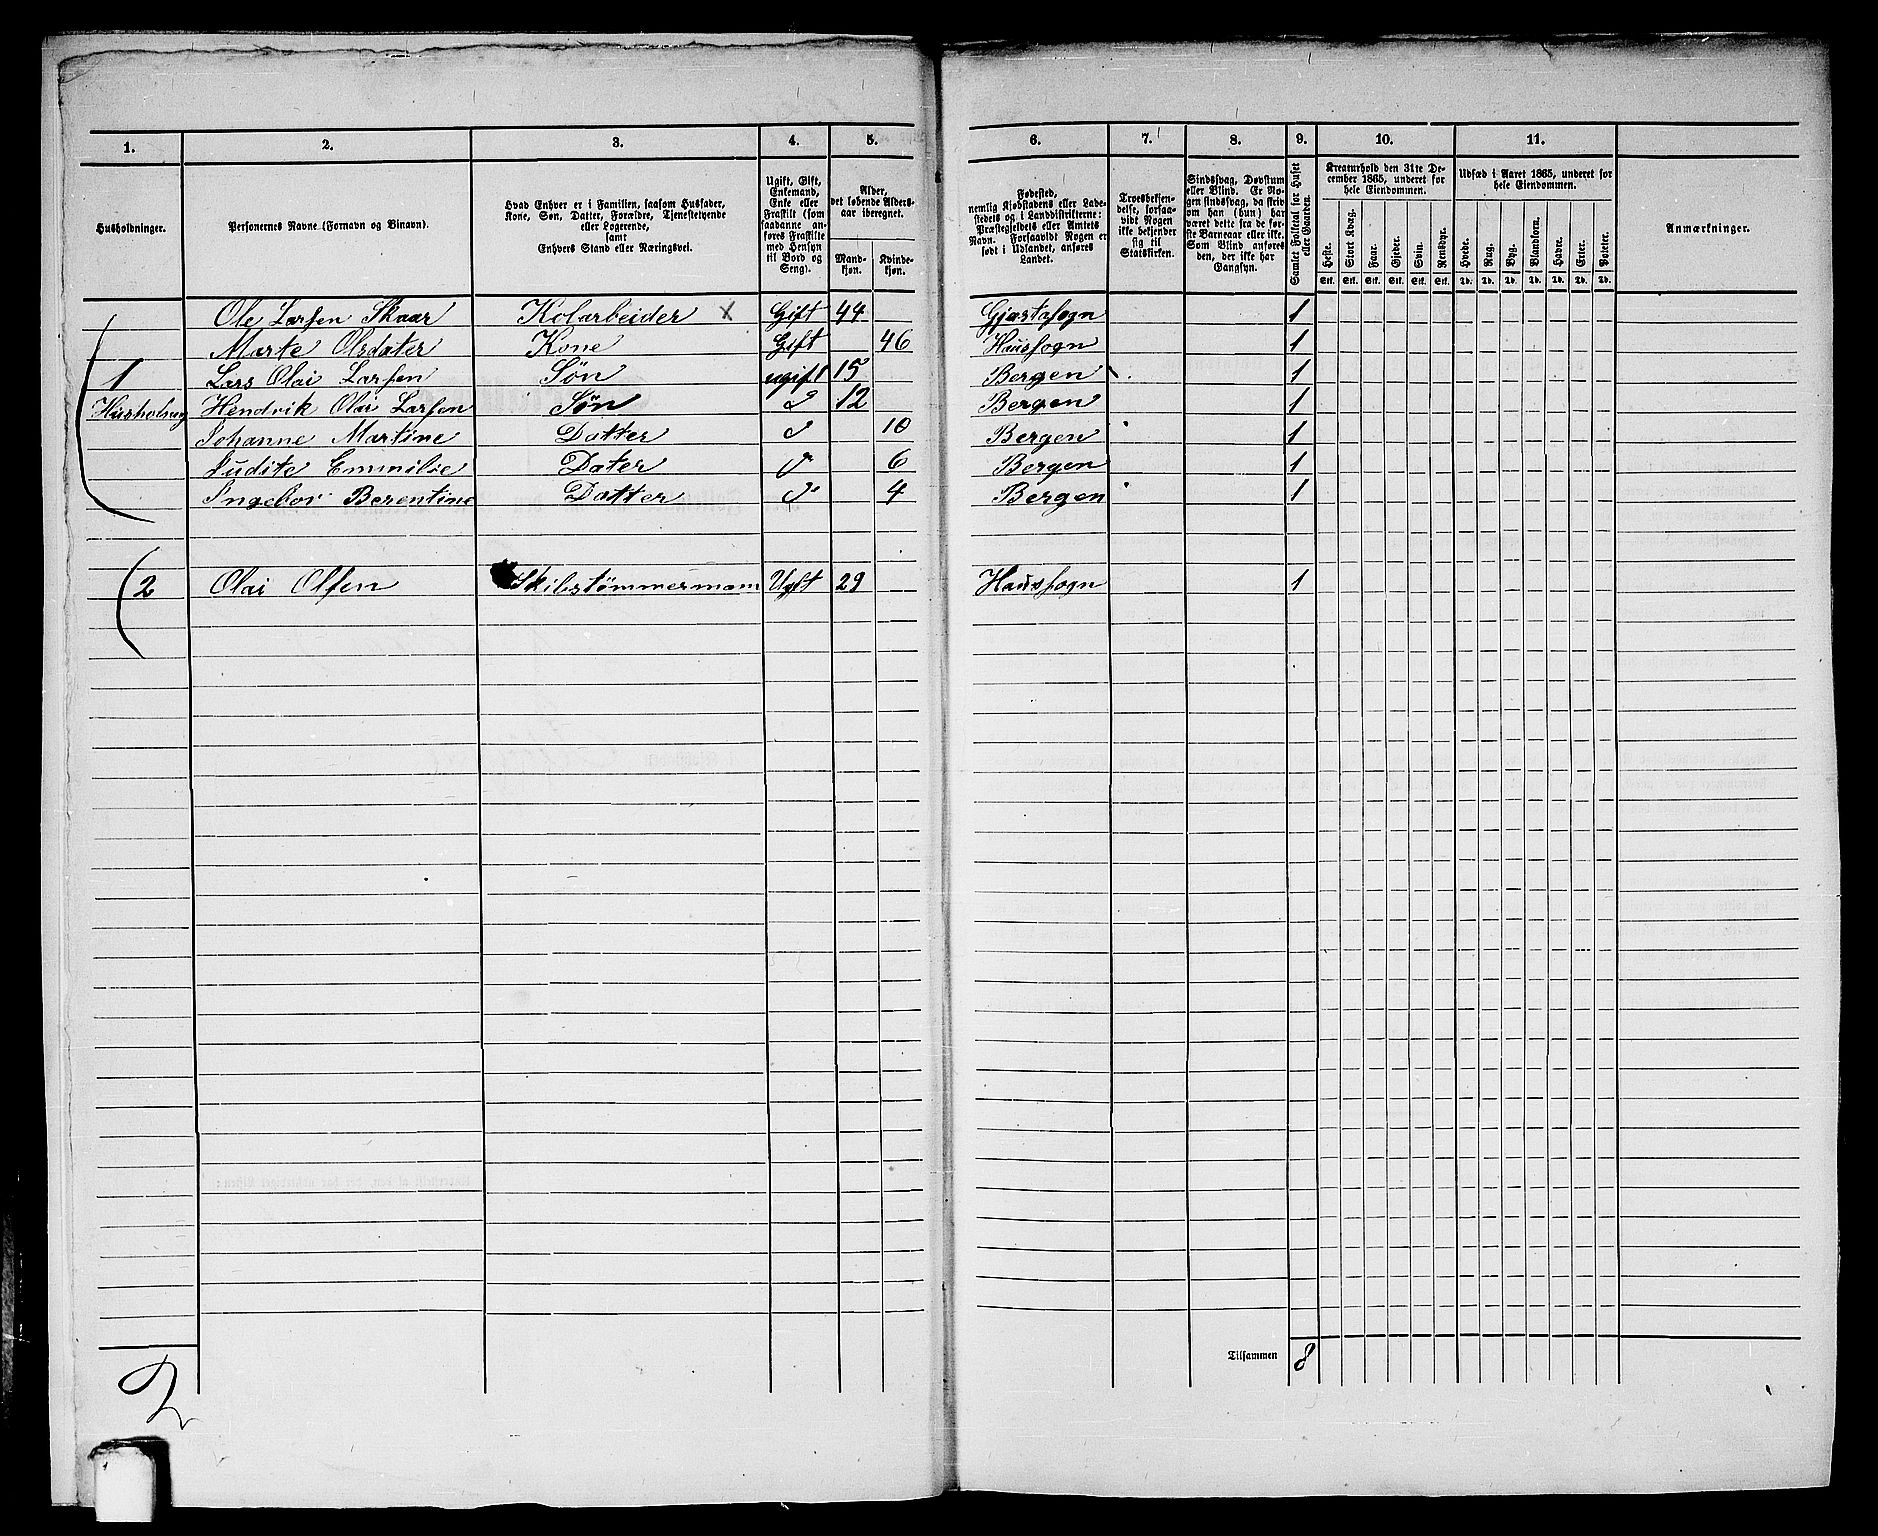 1. 2. 3. 4. 5. 6. 7. 8. 9. 10. 11.
Husholdninger.
Personernes Navne (Fornavn og Binavn).
Hvad Enhver er i Familien, saasom Husfader,
Kone, Søn, Datter, Forældre, Tjenestetyende
eller Logerende,
samt
Enhvers Stand eller Næringsvei.
Ugift, Gift,
Enkemand,
Enke eller
Fraskilt (som
saadanne an-
føres Fraskilte
med Hensyn
til Bord og
Seng).
Alder,
det løbende Alders-
aar iberegnet.
Mand-
kjøn.
Kvinde-
kjøn.
Fødested,
nemlig Kjøbstadens eller Lade-
stedets og i Landdistrikterne:
Præstegjeldets eller Amtets
Navn. Forsaavidt Nogen er
født i Udlandet, anføres
Landet.
Troesbekjen-
delse, forsaa-
vidt Nogen
ikke bekjender
sig til
Statskirken.
Sindssvag, Døvstum
eller Blind. Er No-
gen sindssvag, da skriv
om han (hun) har
været dette fra de før-
ste Barneaar eller ikke.
Som Blind anføres
den, der ikke har
Gangsyn.
Samlet Folketal for Huset
eller Gaarden.
Kreaturhold den 31te De-
cember 1865, underet for
hele Eiendommen.
Heste. Stort Kvæg. Faar. Gjeder. Svin. Rensdyr.
Stk. Stk. Stk. Stk. Stk. Stk.
Udsæd i Aaret 1865, underet for
hele Eiendommen.
Hvede. Rug. Byg. Blandkorn. Havre. Erter. Poteter.
Td. Td. Td. Td. Td. Td. Td.
Anmærkninger.
Ole Larsen Skaar Kolarbeider x Gift 44 Gjæstasogn 1
Marte Olsdater Kone Gift 46 Haussogn 1
1 Lars Olai Larsen Søn ugift 15 Bergen 1
Husholning Hendrik Olai Larsen Søn 12 Bergen 1
Johanne Martine Datter 10 Bergen 1
Judite Emmilie Dater 6 Bergen 1
Ingebor Berentine Datter 4 Bergen 1
2 Olai Olsen Skibstømmermam Ugft 29 Haussogn 1
Tilsammen 8
2